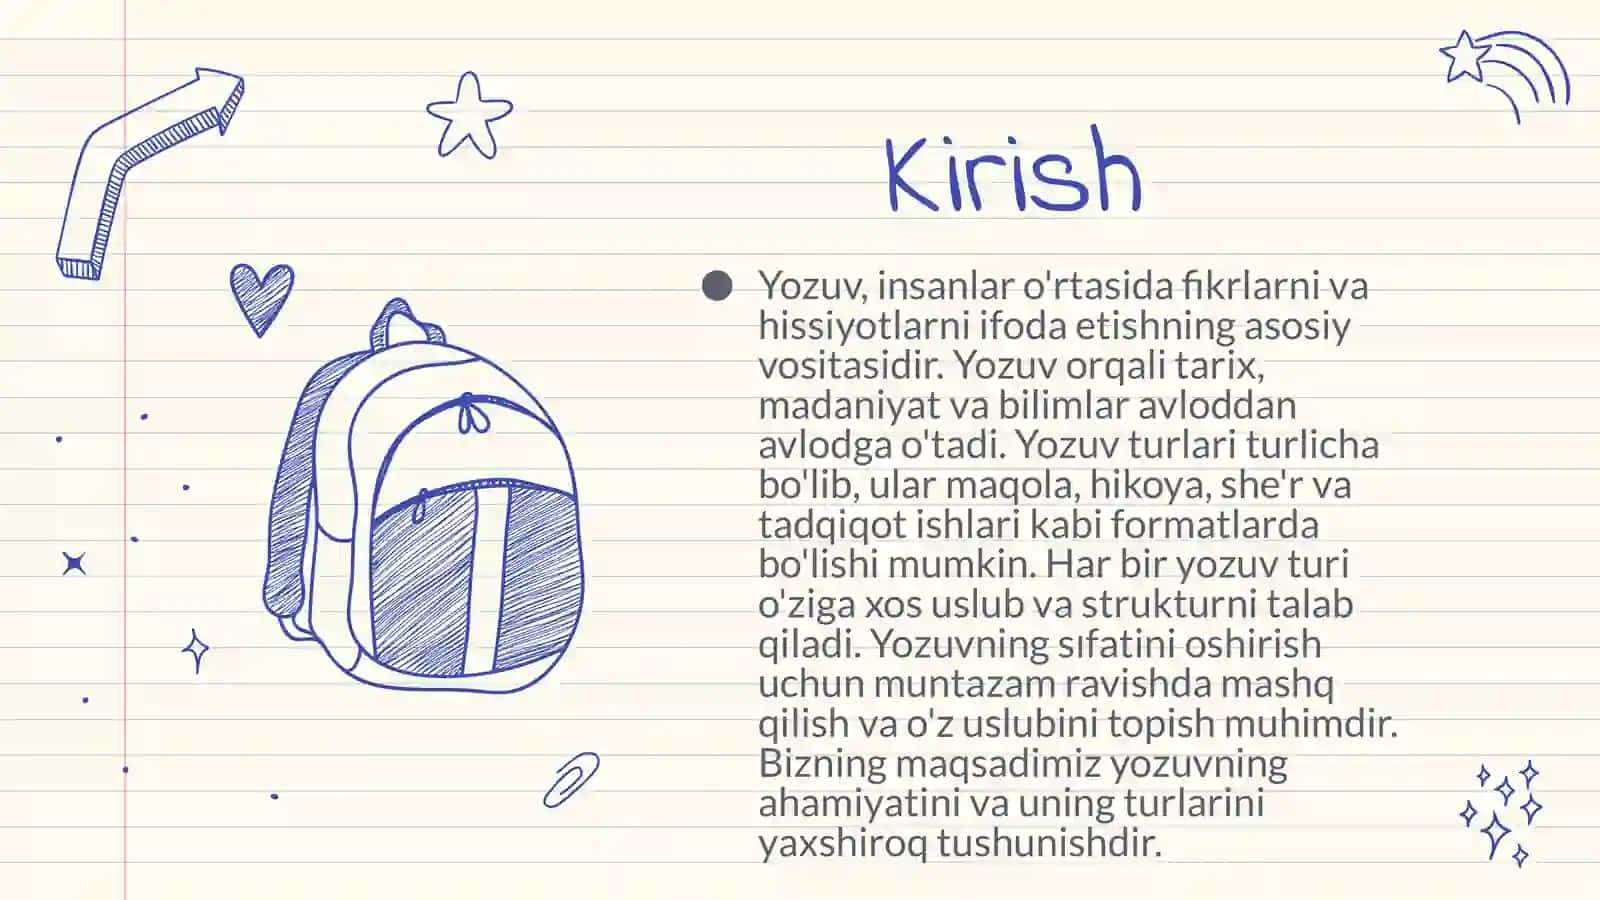 Kirish
Yozuv, insanlar o'rtasida fikrlarni va
hissiyotlarni ifoda etishning asosiy
vositasidir. Yozuv orqali tarix,
madaniyat va bilimlar avloddan
avlodga o'tadi. Yozuv turlari turlicha
bo'lib, ular maqola, hikoya, she'r va
tadqiqot ishlari kabi formatlarda
bo'lishi mumkin. Har bir yozuv turi
o'ziga xos uslub va strukturni talab
qiladi. Yozuvning sıfatini oshirish
uchun muntazam ravishda mashq
qilish va o'z uslubini topish muhimdir.
Bizning maqsadimiz yozuvning
ahamiyatini va uning turlarini
yaxshiroq tushunishdir.